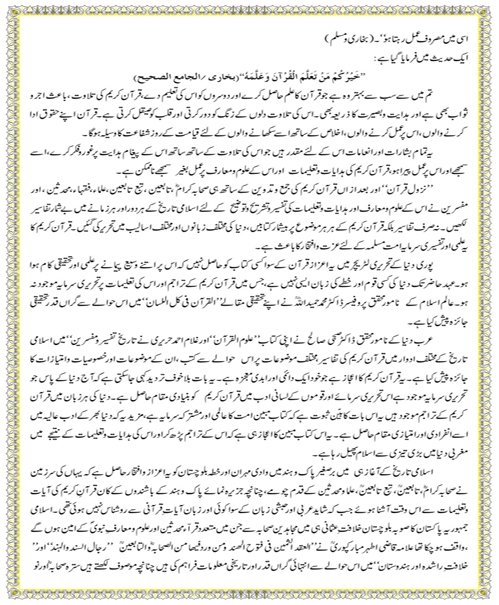 اسی میں مصروف عمل رہتا ہو''۔(بخاری و مسلم)
ایک حدیث میں فرمایا گیا ہے:
''خَيْرُكُمْ مَنْ تَعَلَّمَ الْقُرْآنَ وَعَلَّمَهُ''(بخاری/الجامع الصحیح)
تم میں سے سب سے بہتر وہ ہے جو قرآن کا علم حاصل کرے اور دوسروں کو اس کی تعلیم دے، قرآن کریم کی تلاوت، باعث اجر و
ثواب بھی ہے اور ہدایت و بصیرت کا ذریعہ بھی۔ اس کی تلاوت دلوں کے زنگ کو دور کرتی اور قلب کو صیقل کرتی ہے۔ قرآن اپنے حقوق ادا
کرنے والوں، اس پر عمل کرنے والوں، اخلاص کے ساتھ اسے سیکھانے والوں کے لئے قیامت کے روز شفاعت کا وسیلہ ہوگا۔
یہ تمام بشارات اور انعامات اس کے لئے مقدر ہیں جو اس کی تلاوت کے ساتھ ساتھ اس کے پیغام ہدایت پر غور و فکر کرے، اسے
سمجھے اور اس پر عمل پیرا ہو، قرآن کریم کی ہدایات و تعلیمات اور اس کے علوم و معارف پر عمل بغیر سمجھے ناممکن ہے۔
''نزول قرآن'' اور بعد ازاں قرآن کریم کی جمع و تدوین کے ساتھ ہی صحابہ کرامؓ، تابعین، تبع تابعین، علماء، فقہاء، محدثین، اور
مفسرین نے اس کے علوم و معارف اور ہدایات و تعلیمات کی تفسیر و تشریح و توضیح کے لئے اسلامی تاریخ کے ہر دور اور ہر زمانے میں بے شمار تفاسیر
لکھیں۔ نہ صرف تفاسیر بلکہ قرآن کریم کے ہر ہر موضوع پر بیشمار کتابیں، دنیا کی مختلف زبانوں اور مختلف اسالیب میں تحریر کی گئیں۔ قرآن کریم کا
یہ علمی اور تفسیری سرمایہ امت مسلمہ کے لئے عزت و افتخار کا باعث ہے۔
پوری دنیا کے تحریری لٹریچر میں یہ اعزاز قرآن کے سوا کسی کتاب کو حاصل نہیں کہ اس پر اتنے وسیع پیمانے پر علمی اور تحقیقی کام ہوا
ہو۔ عہد حاضر تک دنیا کی کسی قوم اور خطے کی زبان ایسی نہیں ہے، جس میں قرآن کریم کے تراجم اور اس کی تعلیمات پر تحریری سرمایہ موجود نہ
ہو۔ عالم اسلام کے نامور محقق پروفیسر ڈاکٹر محمد حمید اللہؒ نے اپنے تحقیقی مقالے ''القرآن فی کل اللسان'' میں اس حوالے سے گراں قدر
جائزہ پیش کیا ہے۔
عرب دنیا کے نامور محقق ڈاکٹر صبحی صالح نے اپنی کتاب ''علوم القرآن'' اور غلام احمد حریری نے تاریخ تفسیر و مفسرین'' میں اسلامی
تاریخ کے مختلف ادوار میں قرآن کریم کی تفاسیر مختلف موضوعات پر اس حوالے سے کتب، ان کے موضوعات اور خصوصیات و امتیازات کا
جائزہ پیش کیا ہے۔ یہ قرآن کریم کا اعجاز ہے جو خود ایک دائمی اور ابدی معجزہ ہے۔ یہ بات بلا خوف تردید کہی جا سکتی ہے کہ آج دنیا کے پاس جو
تحریری سرمایہ موجود ہے اس تحریری سرمائے اور قوموں کے لسانی ادب میں قرآن کریم کو بنیادی مقام حاصل ہے۔ دنیا کی ہر زبان میں قرآن
کریم کے تراجم موجود ہیں یہ اس بات کا بین ثبوت ہے کہ کتاب مبین امت کا عالمی اور مشترکہ سرمایہ ہے، مزید یہ کہ دنیا بھر کے ادب عالیہ میں
اسے انفرادی اور امتیازی مقام حاصل ہے۔ یہ اس کتاب مبین کا اعجاز ہی ہے کہ اس کے تراجم پڑھ کر اور اس کی ہدایات و تعلیمات کے نتیجے میں
مغربی دنیا میں بڑی تیزی سے اسلام پھیل رہا ہے۔
اسلامی تاریخ کے آغاز ہی میں برصغیر پاک و ہند میں وادی مہران اور خطہ بلوچستان کو یہ اعزاز و افتخار حاصل ہے کہ یہاں کی سرزمین
نے صحابہ کرامؓ، تابعینؒ، تبع تابعینؒ، علماء و محدثین کے قدم چومے، چنانچہ جزیرہ نمائے پاک و ہند کے باشندوں کے کان قرآن کریم کی آیات
و تعلیمات سے اس وقت آشنا ہوئے جب کہ شاید عربی اور حبشی زبان کے سوا کوئی اور زبان آیات قرآنی سے روشناس نہیں ہوئی تھی۔ اسلامی
جمہوریہ پاکستان کا صوبہ بلوچستان خلافت عثمانی ہی میں مجاہدین صحابہ سے جن میں متعدد قراء، محدثین اور علوم و معارف نبویؐ کے امین ہوں گے
، واقف ہو چکا تھا علامہ قاضی اطہر مبارکپوریؒ نے ''العقد الثمین فی فتوح الہند ومن وردفیھا من الصحابہؓ والتابعینؒ'' ''رجال السند والہند'' اور''
خلافت راشدہ اور ہندوستان'' میں اس حوالے سے انتہائی گراں قدر اور تاریخی معلومات فراہم کی ہیں چنانچہ موصوف لکھتے ہیں سترہ صحابہؓ اور نو